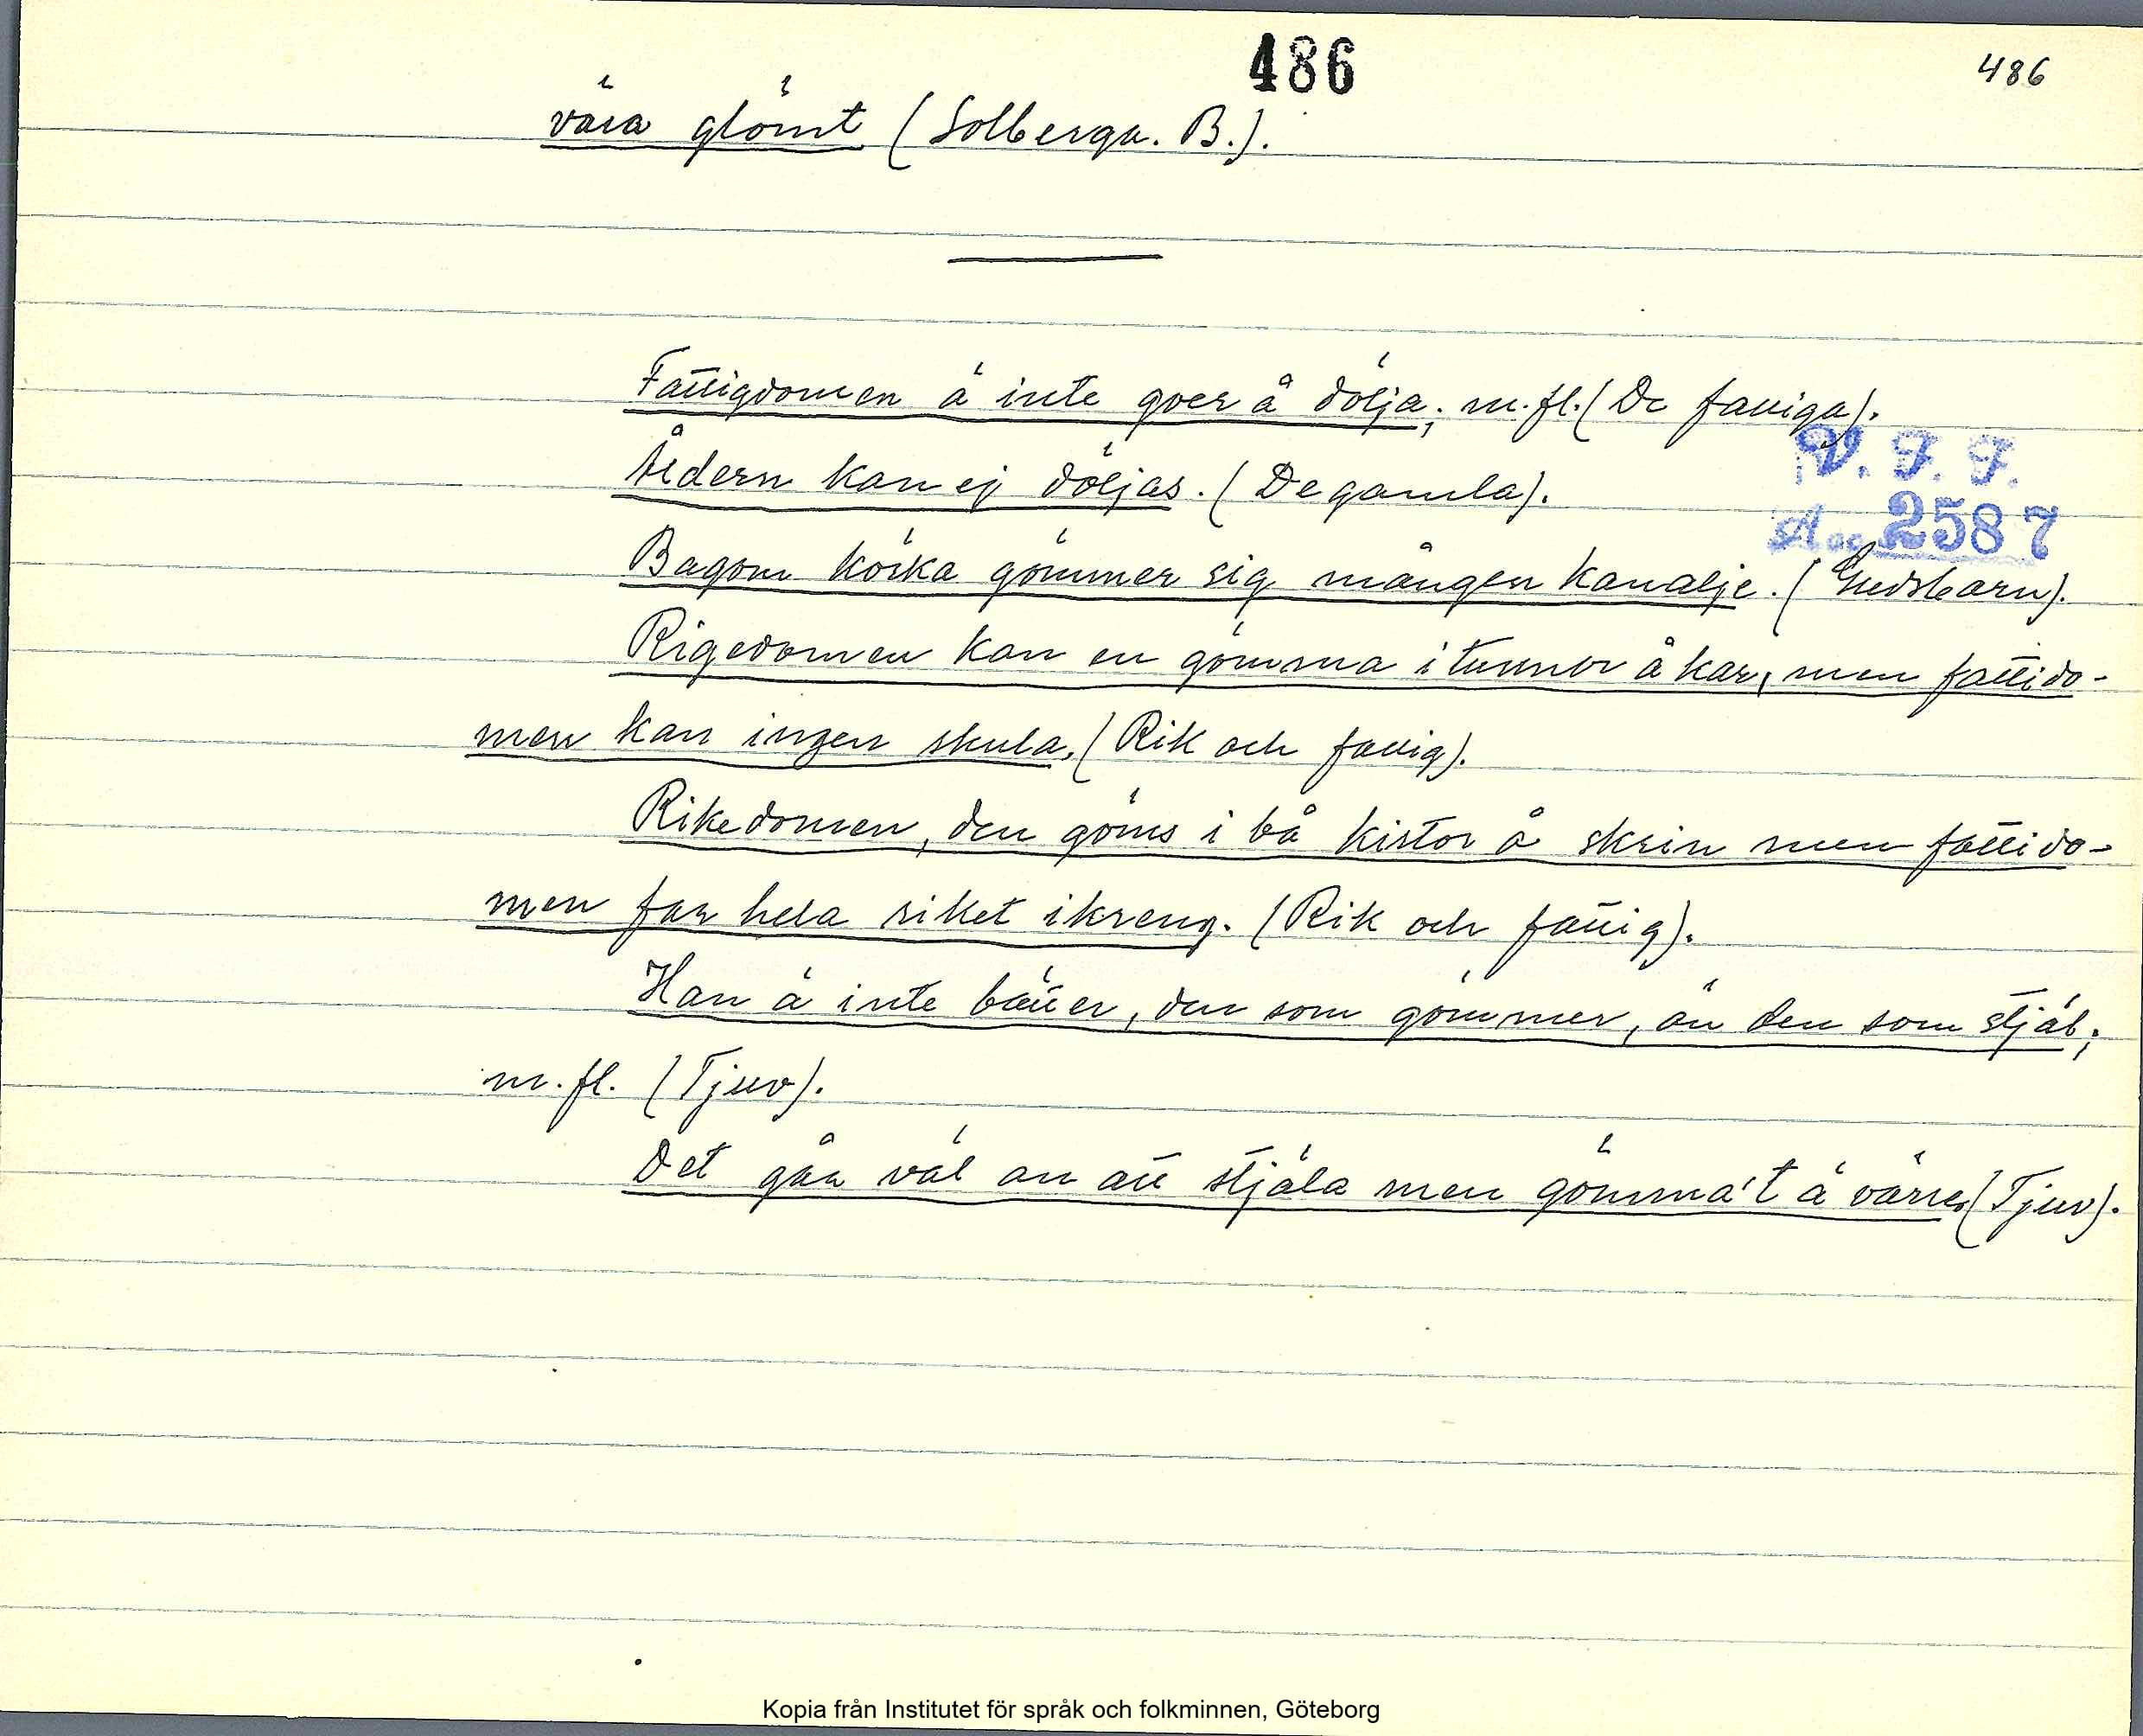 486
486
vära glömt (Solberga. B.).
Fattigdomen ä inte goer å dölja; m.fl. (De fattiga).
Åldern kan ej döljas. (De gamla).
V. F. F.
Acc 2587
Bagom körka gömmer sig mången kanalje. (Gudsbarn).
Rigedomen kan en gömma i tunnor å kar, men fattido-
men kan ingen skula. (Rik och fattig).
Rikedomen, den göms i bå kistor å skrin men fattido-
men far hela riket ikreng. (Rik och fattig).
Han ä inte bätter, den som gömmer, än den som stjäl;
m.fl. (Tjuv).
Det går väl an att stjäla men gömma't ä värre (Tjuv).
Kopia från Institutet för språk och folkminnen, Göteborg